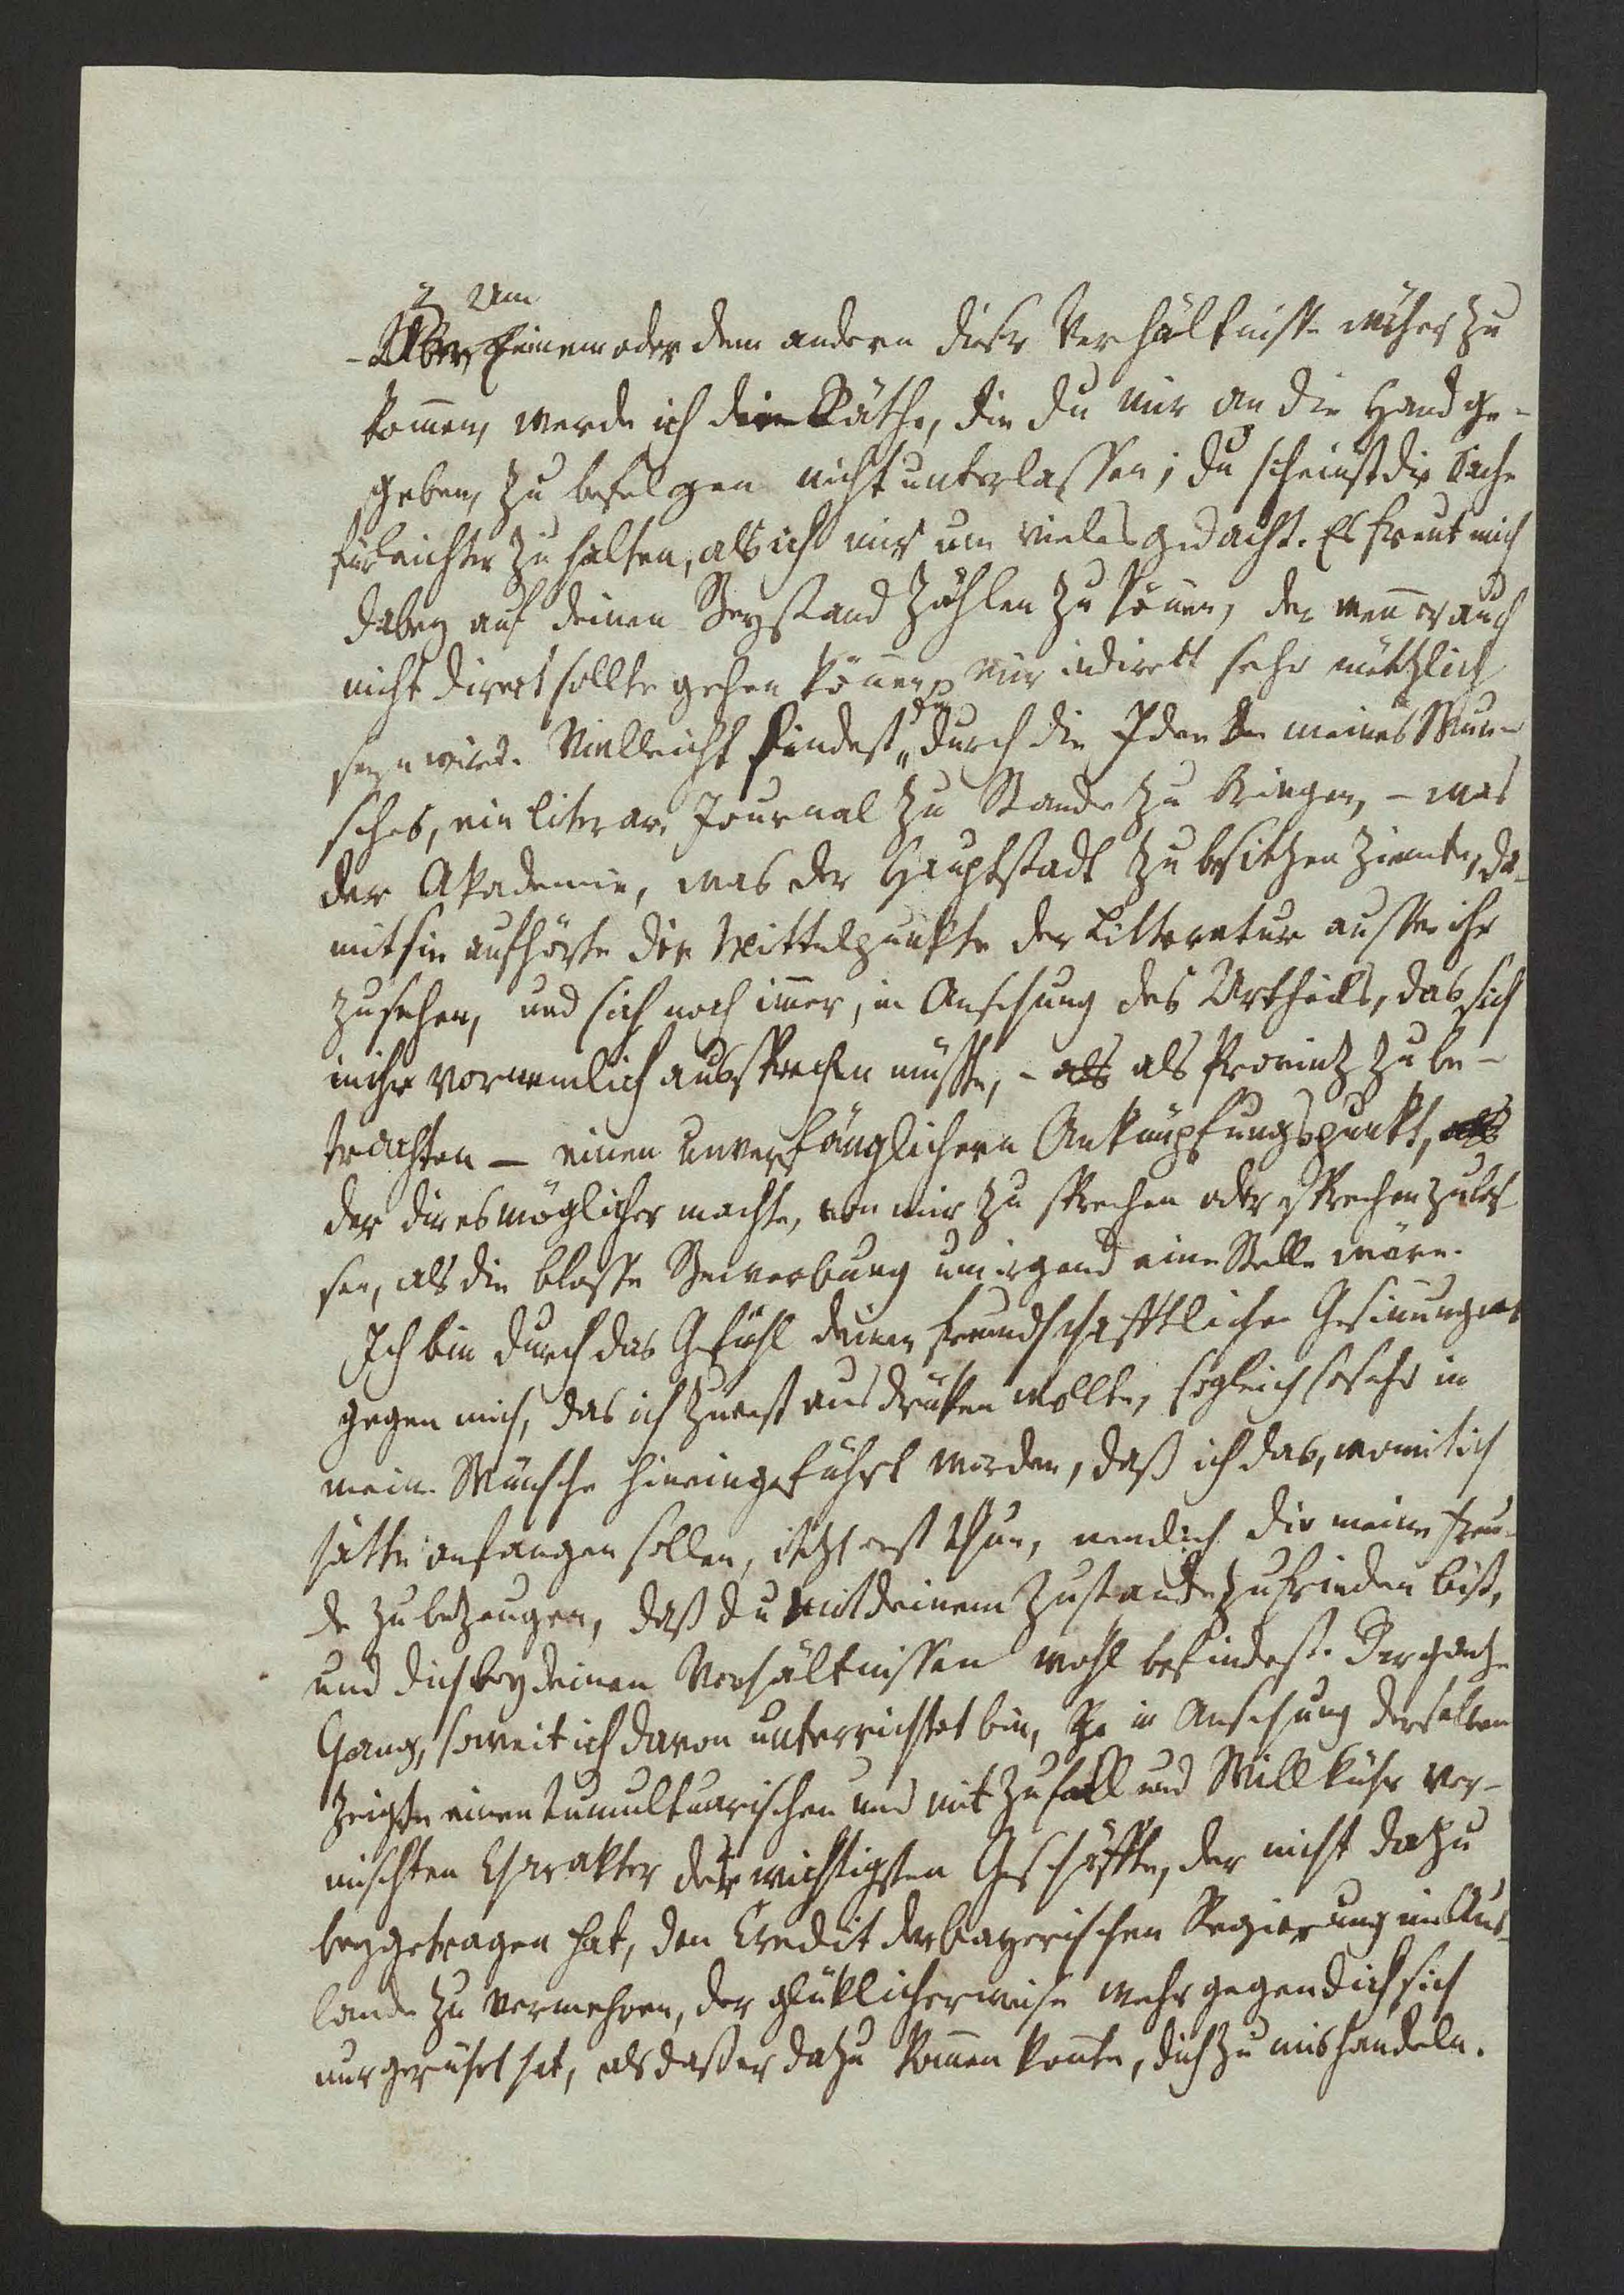 Um
– Aber, Einem oder dem andern dieser Verhältnisse näher zu
kommen, werde ich die Räthe, die du mir an die Hand ge-
geben, zu befolgen nicht unterlassen; du scheinst die Sache
für leichter zu halten, als ich mir um vieles gedacht. Es freut mich
dabey auf deinen Beystand zählen zu können, der wenn er auch
nicht direct sollte gehen können, mir indirekt sehr nützlich
du
seyn wird. Vielleicht findest durch die Idee meines Wun-
sches, ein literar. Journal zu Stande zu bringen, – was
der Akademie, was der Hauptstadt zu besitzen ziemte, da-
mit sie aufhörte die Mittelpunkte der Litteratur ausser ihr
zu sehen, und sich noch immer, in Ansehung des Urtheils, das sich
in ihr vornemlich aussprechen müsste, – als als Provintz zu be-
trachten – einen unverfänglichern Anknüpfungspunkt, als
der dir es möglicher machte, von mir zu sprechen oder sprechen zu las-
sen, als die blosse Bewerbung um irgend eine Stelle wäre.
Ich bin durch das Gefühl deiner freundschafftlichen Gesinnungen
gegen mich, das ich zuerst ausdrüken wollte, sogleich so sehr in
meine Wünsche hineingeführt worden, daß ich das, womit ich
hätte anfangen sollen, itzt erst thue, nemlich dir meine Freu-
de zu bezeugen, daß du mit deinem Zustande zufrieden bist,
und dich bey deinen Verhältnissen wohl befindest. Der ganze
Gang, soweit ich davon unterrichtet bin, in Ansehung derselben
zeigte einen tumultuarischen und mit Zufall und Willkühr ver-
mischten Charakter der wichtigsten Geschäffte, der nicht dazu
beygetragen hat, den Credit der bayerischen Regierung im Aus-
lande zu vermehren, der glüklicherweise mehr gegen dich sich
nur gerührt hat, als daß er dazu kommen konnte, dich zu mishandeln.